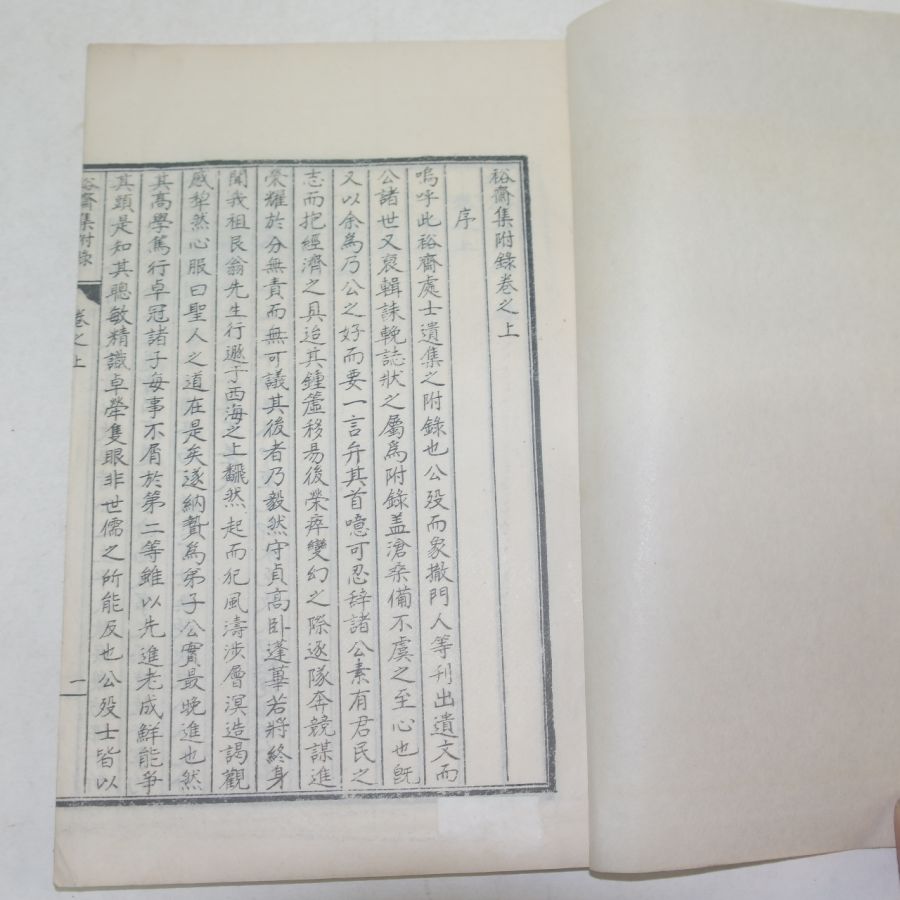 裕齋集附錄卷之上
序
嗚呼此裕齋處士遺集之附錄也公歿而象撤門人等刊出遺文而
公諸世又裒輯誄輓誌狀之屬爲附錄盖滄桑備不虞之至心也旣
又以余爲乃公之好而要一言弁其首噫可忍辞諸公素有君民之
志而抱經濟之具迨其鍾簴移易後榮瘁變幻之際逐隊奔競謀進
榮耀於分無責而無可議其後者乃毅然守貞高卧蓬蓽若將終身
聞我祖艮翁先生行遯于西海之上飜然起而犯風濤涉層溟造謁觀
感犂然心服曰聖人之道在是矣遂納贄爲弟子公實最晚進也然
其高學篤行卓冠諸子每事不屑於第二等雖以先進老成鮮能爭
其頭是知其聰敏精識卓犖隻眼非世儒之所能及也公歿士皆以
裕齋集附錄 卷之上 一